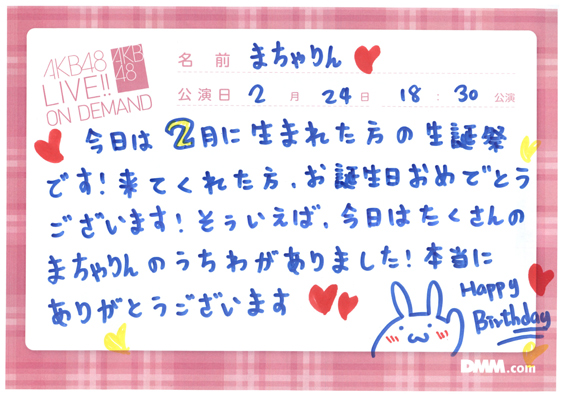 AKB48
LIVE!!
ON DEMAND
AKB
48
名前 まちゃりん
公演日 2月 24日 18:30公演
今日は2月に生まれた方の生誕祭
です!来てくれた方、お誕生日おめでとう
ございます!そういえば、今日はたくさんの
まちゃりんのうちわがありました!本当に
ありがとうございます
Happy
Birthday
DMM.com